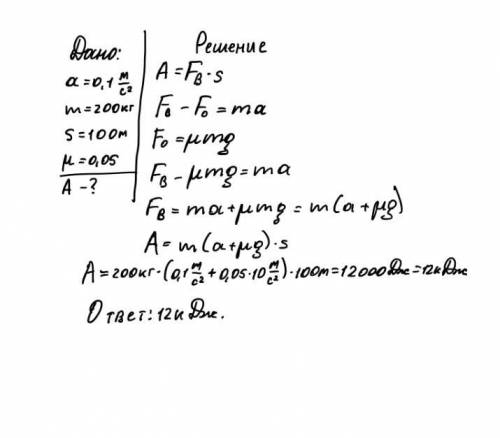 Дано:
a=0,1 м/с²
m=200кг
S=100м
μ=0,05
A-?
Решение
A=Fв·s
Fв-Fо=ma
Fо=μmg
Fв-μmg=ma
Fв=ma+μmg=m(a+μg)
A=m(a+μg)·s
A=200кг·(0,1 м/с²+0,05·10 м/с²)·100м=12000Дж=12кДж
Ответ:12кДж.